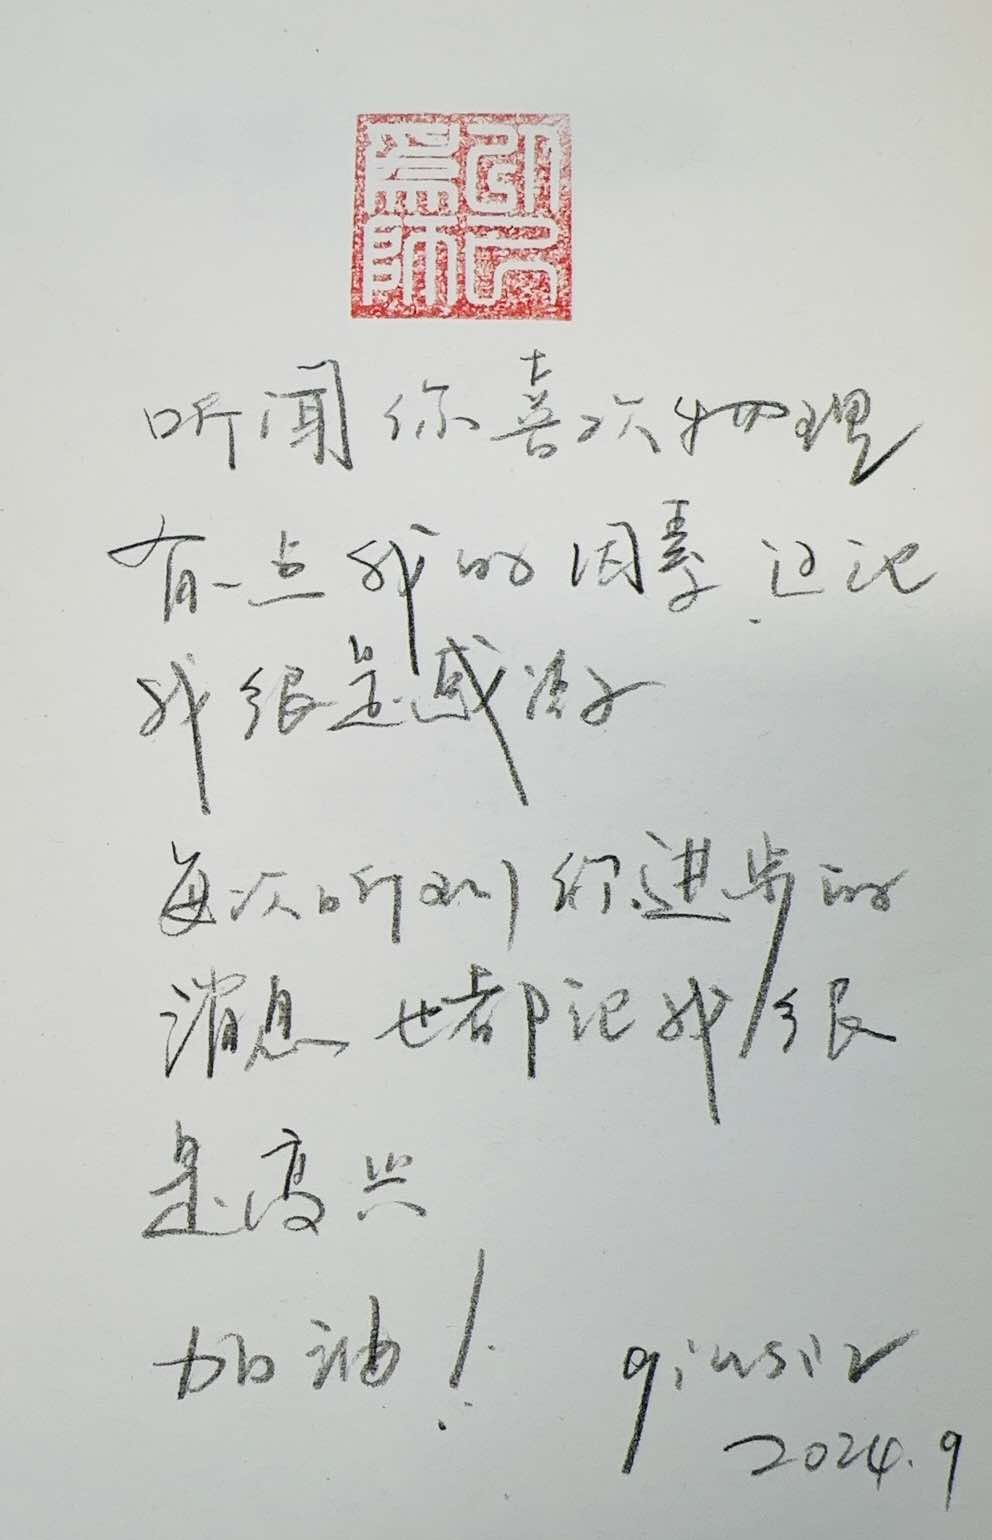 為師
听闻你喜欢物理
有一点我的因素.这让
我很是感激
每次听到你进步的
消息 也都让我很
是高兴
加油! qiusir
2024.9